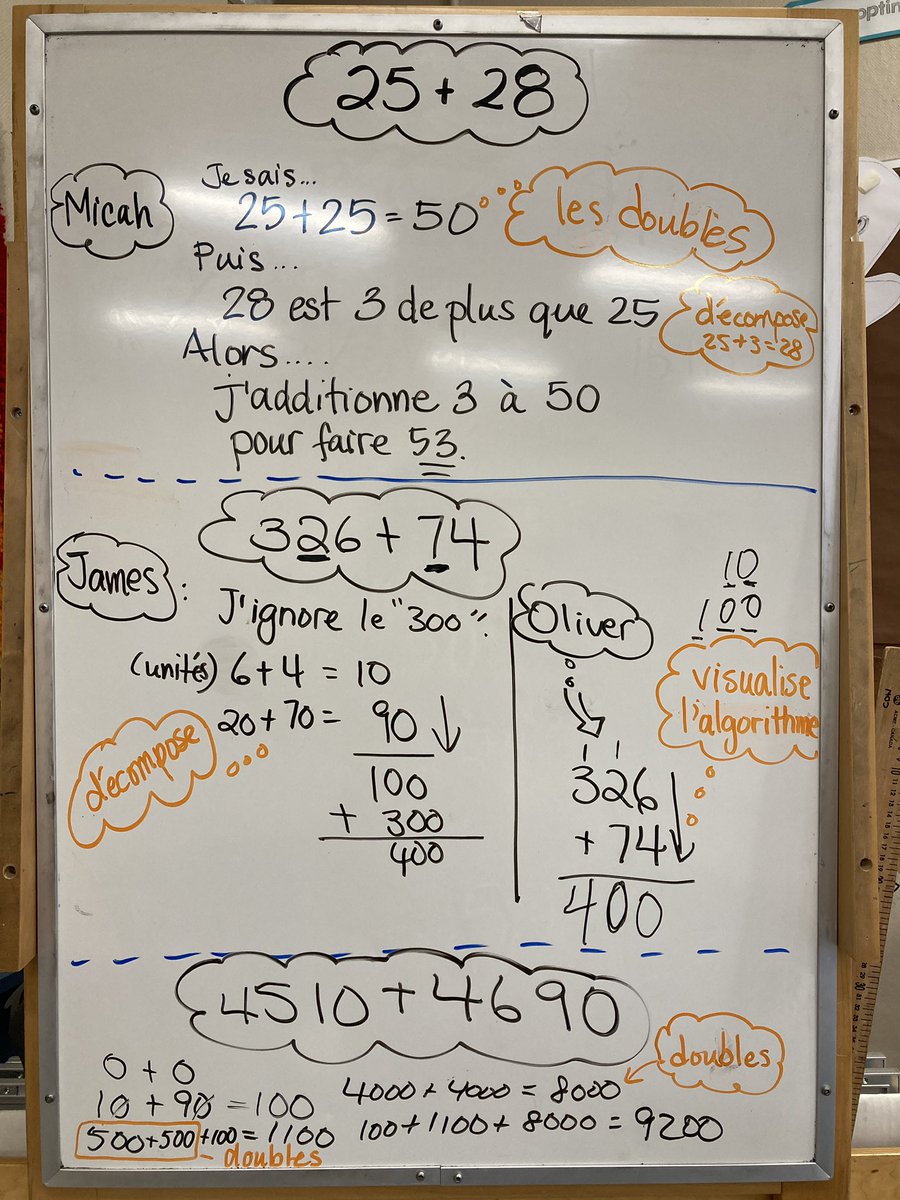 25 + 28
Micah
Je sais...
25 + 25 = 50
les doubles
Puis...
28 est 3 de plus que 25
décompose
25 + 3 = 28
Alors....
j'additionne 3 à 50
pour faire 53.
326 + 74
James :
J'ignore le "300".
(unités) 6 + 4 = 10
20 + 70 = 90
décompose
100
+ 300
400
Oliver
10
100
visualise
l'algorithme
1 1
326
+ 74
400
4510 + 4690
0 + 0
10 + 90 = 100
500 + 500 + 100 = 1100
doubles
4000 + 4000 = 8000
doubles
100 + 1100 + 8000 = 9200